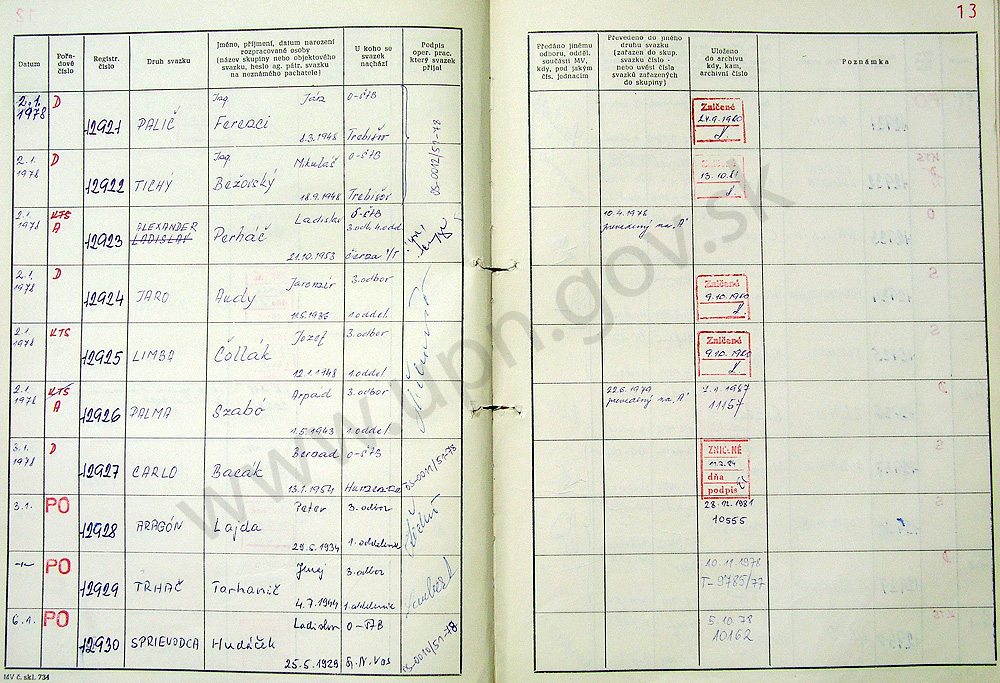 13
Datum
Pořa-
dové
číslo
Registr.
číslo
Druh svazku
Jméno, příjmení, datum narození
rozpracované osoby
(název skupiny nebo objektového
svazku, heslo ag. pátr. svazku
na neznámého pachatele)
U koho se
svazek
nachází
Podpis
oper. prac.
který svazek
přijal
Předáno jinému
odboru, odděl.
součásti MV,
kdy, pod jakým
čís. jednacím
Převedeno do jiného
druhu svazku
(zařazen do skup.
svazku číslo -
nebo uvést čísla
svazků zařazených
do skupiny)
Uloženo
do archivu
kdy, kam,
archivní číslo
Poznámka
2.1. 1978 D 12921 PALIČ Ing. Ján Ferenci 8.3.1948 O-ŠTB Trebišov
Zničené
24.9.1980
2.1. 1978 D 12922 TICHÝ Ing. Mikuláš Bežovský 18.9.1948 O-ŠTB Trebišov
OS-0012/51-78
13.10.81
2.1. 1978 KTS A 12923 ALEXANDER LADISLAV Ladislav Perháč 21.10.1953 O-ŠTB 3.odb. 4.odd. Čierna n/T
10.4.1978
prevedený na „A"
2.1. 1978 D 12924 JARO Jaromír Audy 11.5.1936 3.odbor 1.oddel
Zničené
9.10.1980
2.1. 1978 KTS 12925 LIMBA Jozef Čollák 12.1.1948 3.odbor 1.oddel
Zničené
9.10.1980
2.1. 1978 KTS A 12926 PALMA Arpad Szabó 1.5.1943 3.odbor 1.oddel
22.6.1979
prevedený na „A"
11157
3.1. 1978 D 12927 CARLO Bernad Bacák 13.1.1954 O-ŠTB
OS-0011/51-78
ZNIČENÉ
dňa
podpis
3.1. PO 12928 ARAGÓN Peter Lajda 3.odbor 1.oddelenie
28.12.1981
10555
-"- PO 12929 TRHAČ Juraj Tarhanič 4.7.1944 3.odbor 1.oddelenie
10.11.1978
T-9785/77
6.1. PO 12930 SPRIEVODCA Ladislav Hudáček 25.5.1929 O-ŠTB Sp.N.Ves
OS-0014/51-78
5.10.78
10162
MV č. skl. 734
www.upn.gov.sk